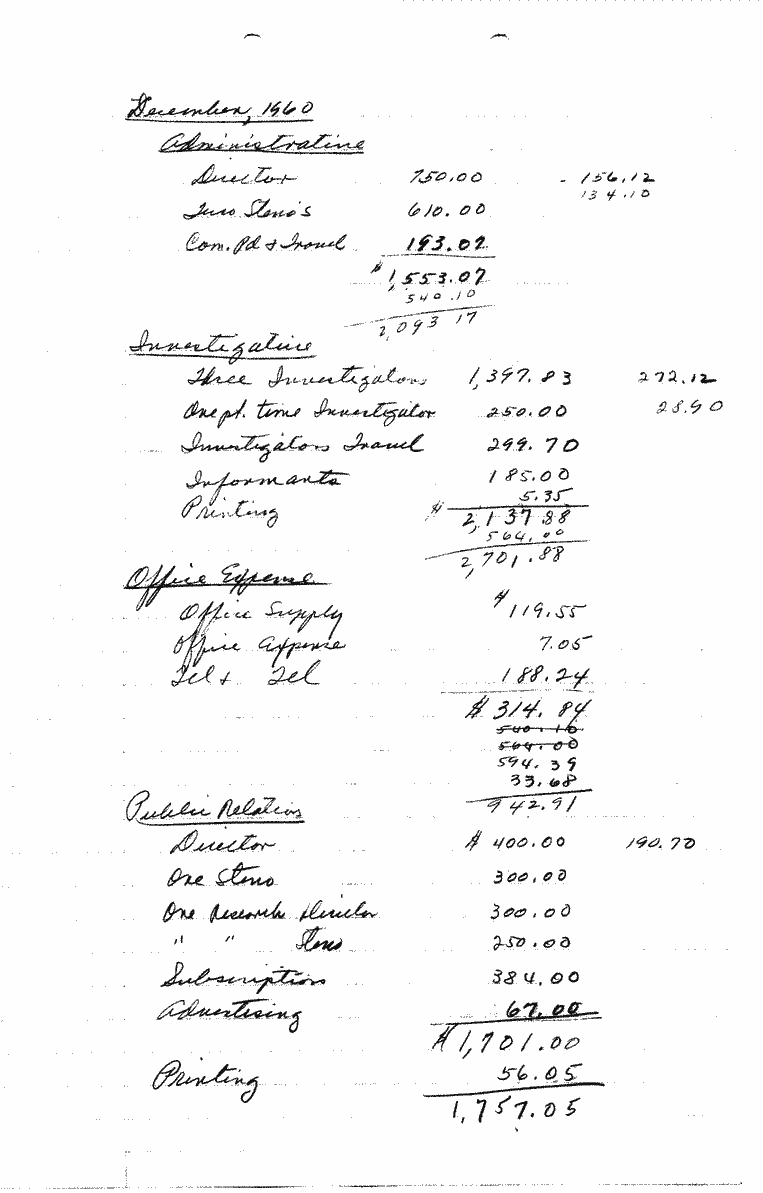 December, 1960
Administrative
Director 750.00 - 156.12
134.10
Two Steno's 610.00
Com. Pd & Travel 193.07
$1,553.07
540.10
2,093 17
Investigative
Three Investigators 1,397.83 272.12
One pt. time Investigator 250.00 28.90
Investigators Travel 299.70
Informants 185.00
5.35
Printing $ 2,137.88
564.00
2,701.88
Office Expense
Office Supply $119.55
Office Expense 7.05
Tel & Tel 188.24
$314.84
540.10
564.00
594.39
33.68
942.91
Public Relations
Director $ 400.00 190.70
One Steno 300.00
One Research Director 300.00
" " Steno 250.00
Subscriptions 384.00
Advertising 67.00
$1,701.00
Printing 56.05
1,757.05